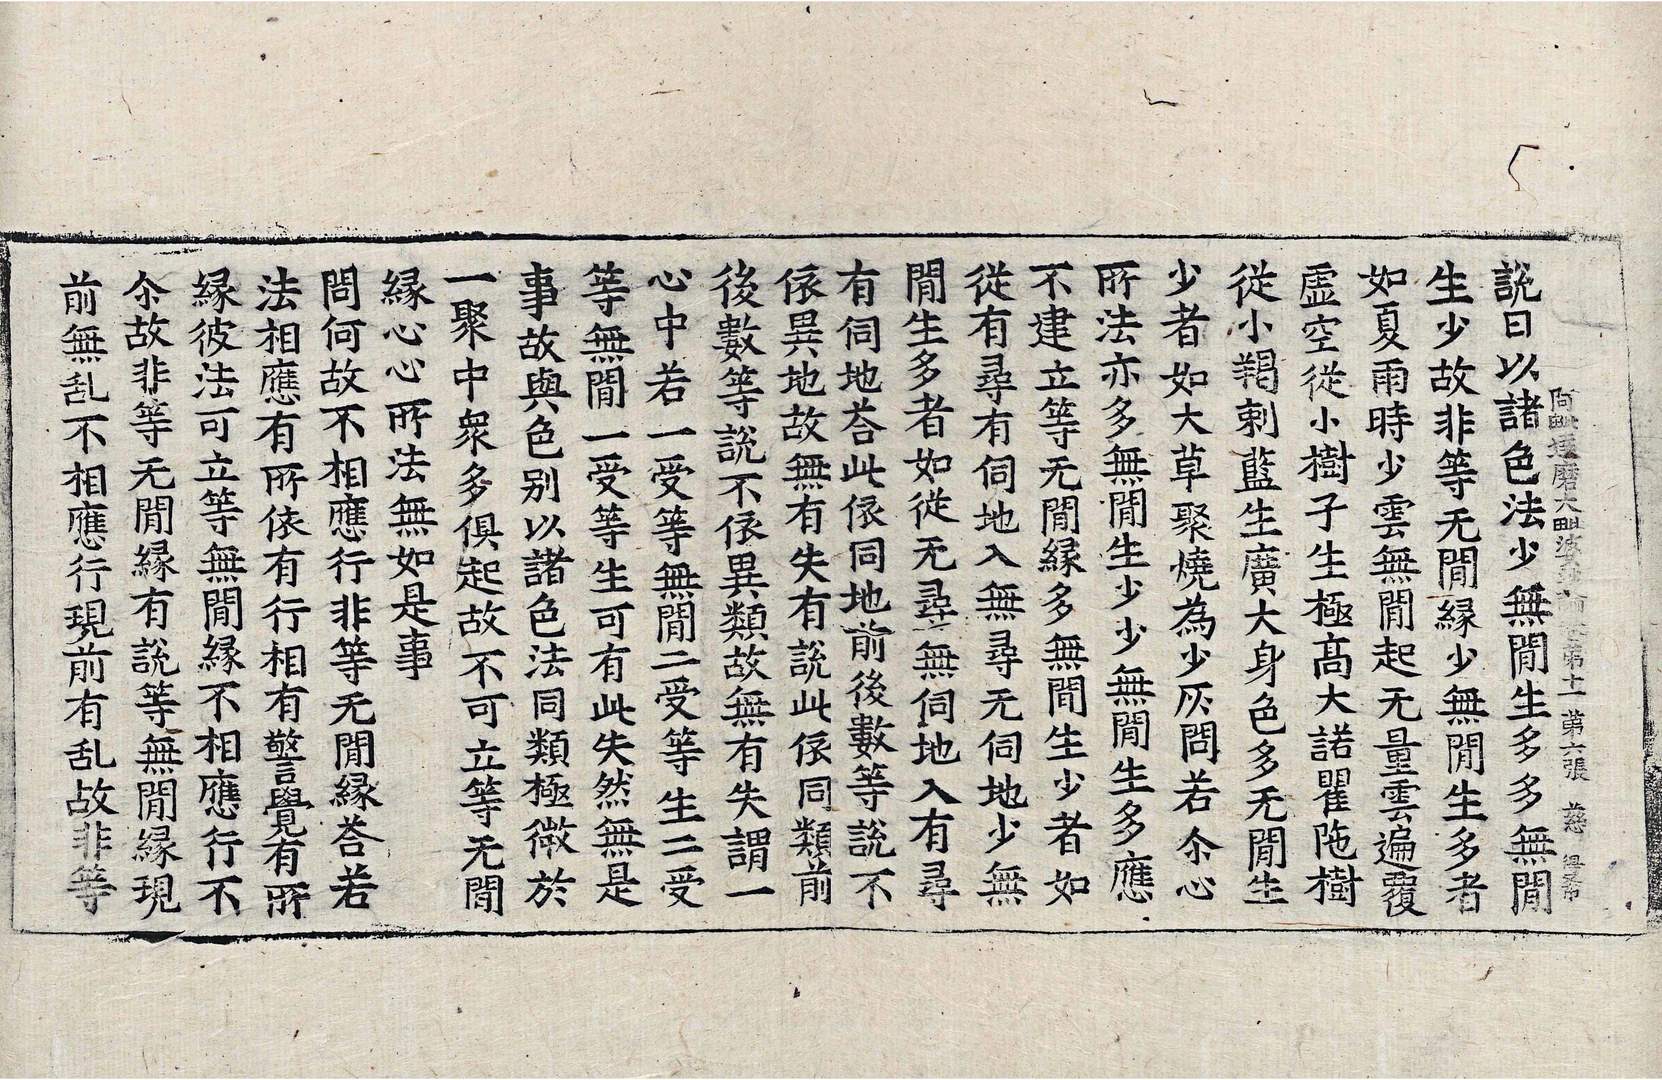 阿毗達磨大毗婆沙論卷第十一 第六張 慈
說曰以諸色法少無閒生多多無閒
生少故非等无閒緣少無閒生多者
如夏雨時少雲無閒起无量雲遍覆
虛空從小樹子生極高大諾瞿陁樹
從小羯剌藍生廣大身色多无閒生
少者如大草聚燒為少灰問若尒心
所法亦多無閒生少少無閒生多應
不建立等无閒緣多無閒生少者如
從有尋有伺地入無尋无伺地少無
閒生多者如從无尋無伺地入有尋
有伺地荅此依同地前後數等說不
依異地故無有失有說此依同類前
後數等說不依異類故無有失謂一
心中若一受等無閒二受等生二受
等無閒一受等生可有此失然無是
事故與色別以諸色法同類極微於
一聚中衆多俱起故不可立等无閒
緣心心所法無如是事
問何故不相應行非等无閒緣荅若
法相應有所依有行相有警覺有所
緣彼法可立等無閒緣不相應行不
尒故非等无閒緣有說等無閒緣現
前無乱不相應行現前有乱故非等